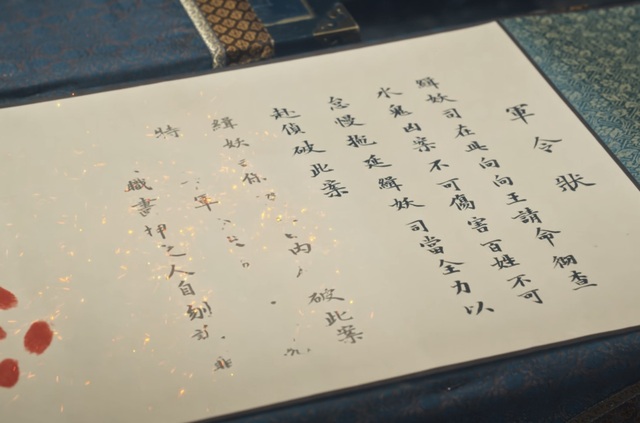 軍令狀
緝妖司在具向向王請命徹查
水鬼凶案不可傷害百姓不可
怠慢拖延緝妖司當全力以
赴偵破此案
緝妖 內 破此案
特 軍
職書押之人自刻